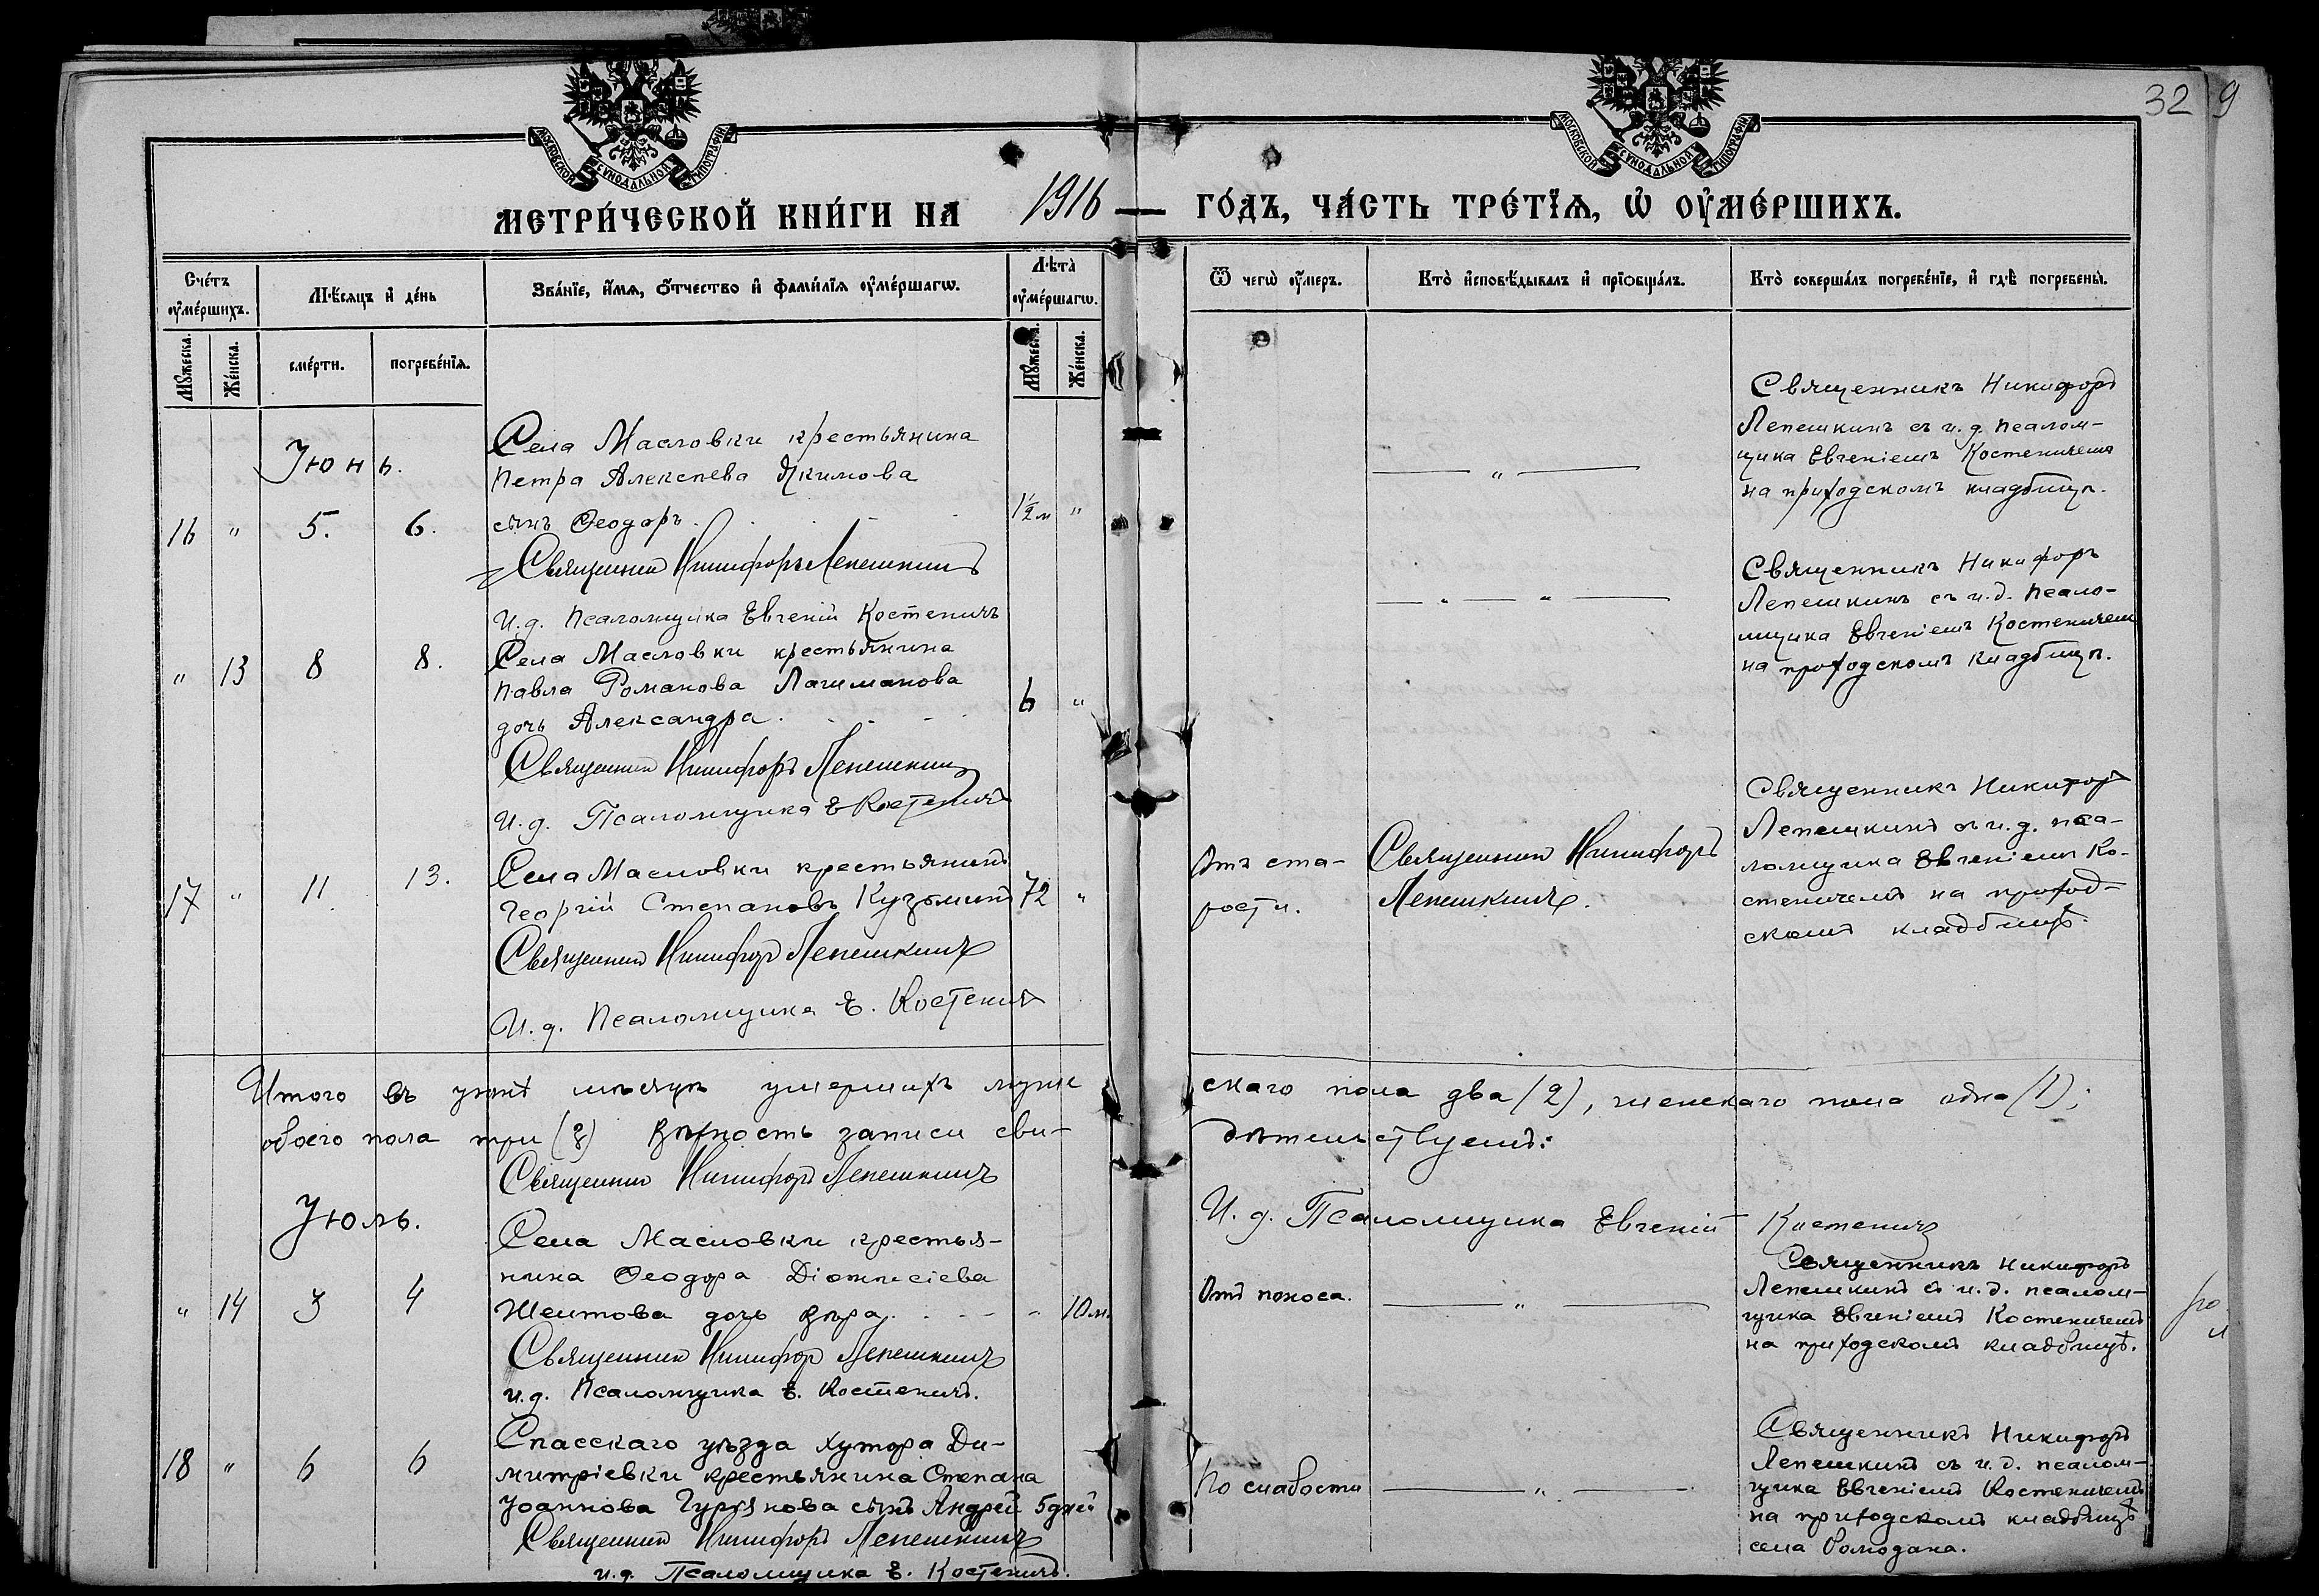 32 9
МОСКОВСКОЙ СУНОДАЛЬНОЙ ТИПОГРАФІИ
МОСКОВСКОЙ СУНОДАЛЬНОЙ ТИПОГРАФІИ
МЕТРИ́ЧЕСКОЙ КНИ́ГИ НА 1916 ГО́ДЪ, ЧА́СТЬ ТРЕ́ТЇѦ, Ѡ ОУ҆МЕ́РШИХЪ.
Сче́тъ оу҆ме́ршихъ.
Мꙋ́жеска.
Же́нска.
Мѣ́сяцъ и҆ де́нь
сме́рти.
погребе́нїѧ.
Зва́нїе, и҆́мѧ, ѻ҆́тчество и҆ фами́лїѧ оу҆ме́ршагѡ.
Лѣта̀ оу҆ме́ршагѡ.
Мꙋ́жеска.
Же́нска.
Ѿ чегѡ̀ оу҆́меръ.
Кто̀ и҆сповѣ́дывалъ и҆ прїѻбща́лъ.
Кто̀ соверша́лъ погребе́нїе, и҆ гдѣ̀ погребены̀.
Іюнь.
16 " 5. 6.
Села Масловки крестьянина
Петра Алексѣева Якимова
сынъ Ѳеодоръ.
1½ м "
Священникъ Никифоръ Лепешкинъ
И.д. Псаломщика Евгеній Костеничъ
— " —
Священникъ Никифоръ
Лепешкинъ съ и.д. псалом-
щика Евгеніемъ Костеничемъ
на приходскомъ кладбищѣ.
" 13 8 8.
Села Масловки крестьянина
Павла Романова Лачиманова
дочь Александра.
6 "
Священникъ Никифоръ Лепешкинъ
И.д. Псаломщика Е Костеничъ
— " — " —
Священникъ Никифоръ
Лепешкинъ съ и.д. псало-
мщика Евгеніемъ Костеничемъ
на приходскомъ кладбищѣ.
17 " 11 13.
Села Масловки крестьянинъ
Георгій Степановъ Кузьминъ
72 "
Священникъ Никифоръ Лепешкинъ
И.д. Псаломщика Е. Костеничъ
Отъ ста-
рости.
Священникъ Никифоръ
Лепешкинъ.
Священникъ Никифоръ
Лепешкинъ съ и.д. пса-
ломщика Евгеніемъ Ко-
стеничемъ на приход-
скомъ кладбищѣ.
Итого въ іюнѣ мѣсяцѣ умершихъ мужескаго пола два (2), женскаго пола одна (1);
обоего пола три (3) Вѣрность записи свидѣтельствуемъ:
Священникъ Никифоръ Лепешкинъ
И.д. Псаломщика Евгеній Костеничъ
Іюль.
" 14 3 4
Села Масловки крестья-
нина Ѳеодора Діонисіева
Желтова дочь Вѣра.
" 10 м.
Священникъ Никифоръ Лепешкинъ
и.д. Псаломщика Е. Костеничъ.
Отъ поноса.
— " —
Священникъ Никифоръ
Лепешкинъ съ и.д. псалом-
щика Евгеніемъ Костеничемъ
на приходскомъ кладбищѣ.
18 " 6 6
Спасскаго уѣзда хутора Ди-
митріевки крестьянина Степана
Іоаннова Гурьянова сынъ Андрей
5 дней
Священникъ Никифоръ Лепешкинъ
и.д. Псаломщика Е. Костеничъ.
По слабости
— " —
Священникъ Никифоръ
Лепешкинъ съ и.д. псалом-
щика Евгеніемъ Костеничемъ
на приходскомъ кладбищѣ
села Ромодана.